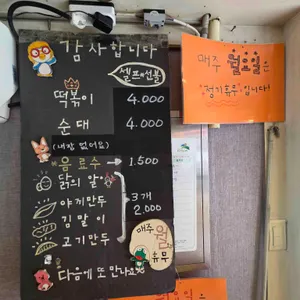 감사합니다
셀프 선불
떡볶이 4.000
순대 4.000
(내장 없어요)
음료수 → 1.500
닭의 알
야끼만두
김말이
고기만두
3개
2.000
매주
월
휴무
다음에 또 만나요
매주 월요일은
"정기휴무"입니다!